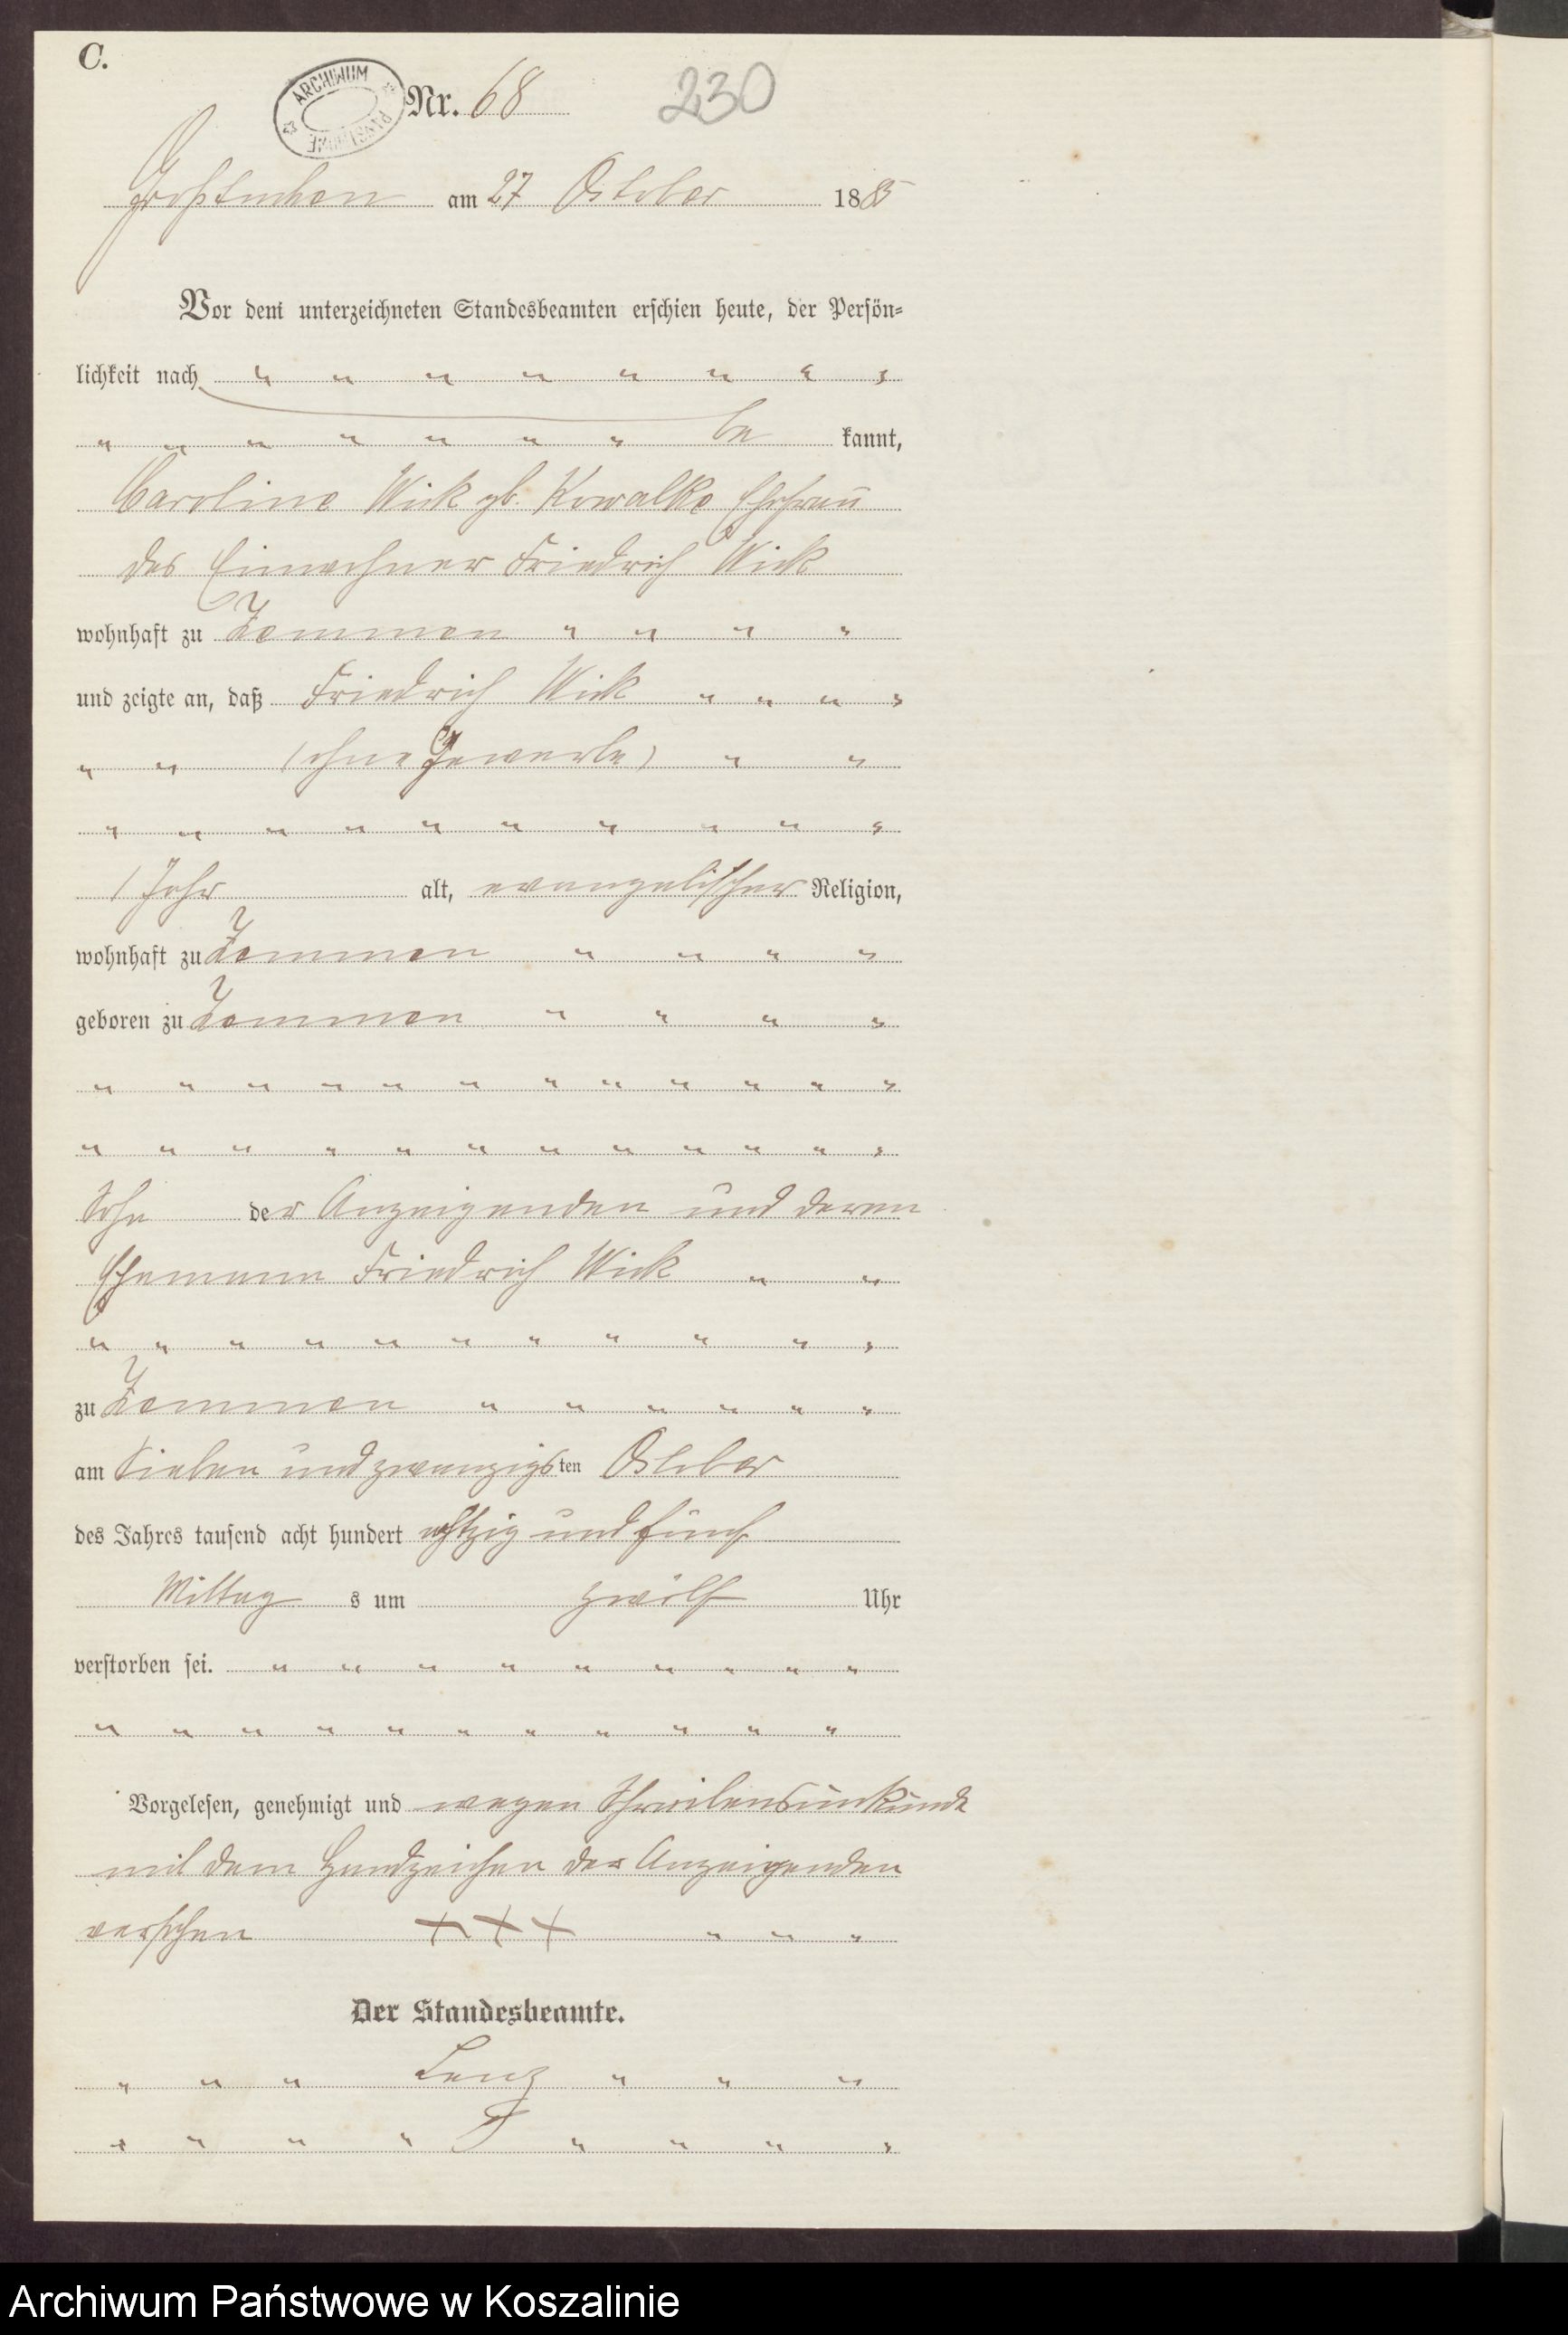 C.
ARCHIWUM PAŃSTWOWE
Nr. 68
230
Großtuchen am 27 October 1885
Vor dem unterzeichneten Standesbeamten erschien heute, der Persön-
lichkeit nach
be kannt,
Caroline Wick gb. Kowalke Ehefrau
des Einwohner Friedrich Wick
wohnhaft zu Zemmen
und zeigte an, daß Friedrich Wick
(ohne Gewerbe)
1 Jahr alt, evangelischer Religion,
wohnhaft zu Zemmen
geboren zu Zemmen
Sohn der Anzeigenden und deren
Ehemann Friedrich Wick
zu Zemmen
am Sieben und zwanzigsten October
des Jahres tausend acht hundert achtzig und fünf
Mittags um zwölf Uhr
verstorben sei.
Vorgelesen, genehmigt und wegen Schreibensunkunde
mit dem Handzeichen der Anzeigenden
versehen XXX
Der Standesbeamte.
Lenz
Archiwum Państwowe w Koszalinie